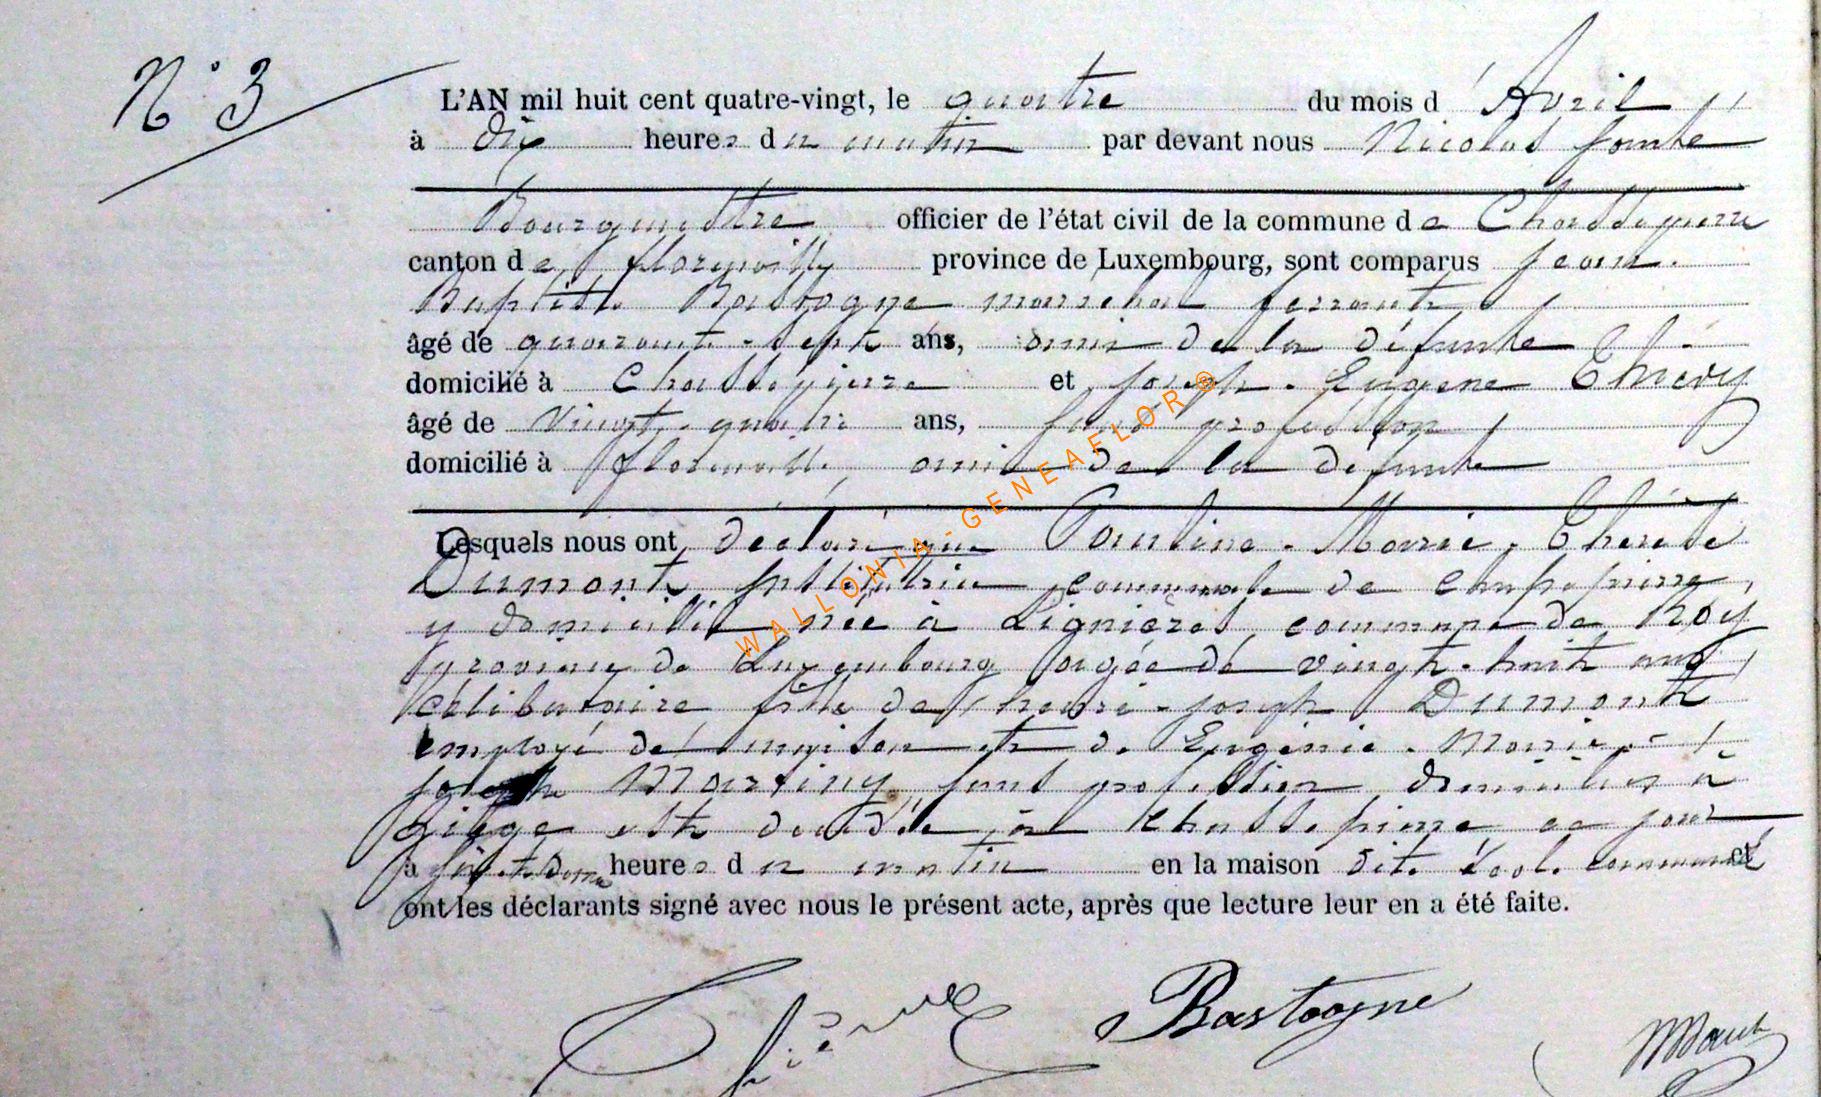 N° 3
L'AN mil huit cent quatre-vingt, le quatre du mois d'Avril
à dix heures du matin par devant nous Nicolas
Bourgmestre officier de l'état civil de la commune de Chassepierre
canton de Florenville province de Luxembourg, sont comparus Jean-
Baptiste Bastogne maréchal ferrant,
âgé de quarante-sept ans, ami de la défunte
domicilié à Chassepierre et Joseph-Eugène Thiéry
âgé de vingt-quatre ans, sans profession,
domicilié à Florenville, ami de la défunte
Lesquels nous ont déclaré que Pauline-Marie-Thérèse
Dumont, institutrice communale de Chassepierre,
y domiciliée, née à Lignières, commune de Roy
province de Luxembourg âgée de vingt-huit ans,
célibataire fille de Henri-Joseph Dumont
employé de et de Eugénie-Marie-
Joseph Martiny sans profession domiciliés à
Liège est décédée à Chassepierre ce jour
à heures du matin en la maison dite école communale et
ont les déclarants signé avec nous le présent acte, après que lecture leur en a été faite.
Bastogne
WALLONIA-GENEAFLOR®